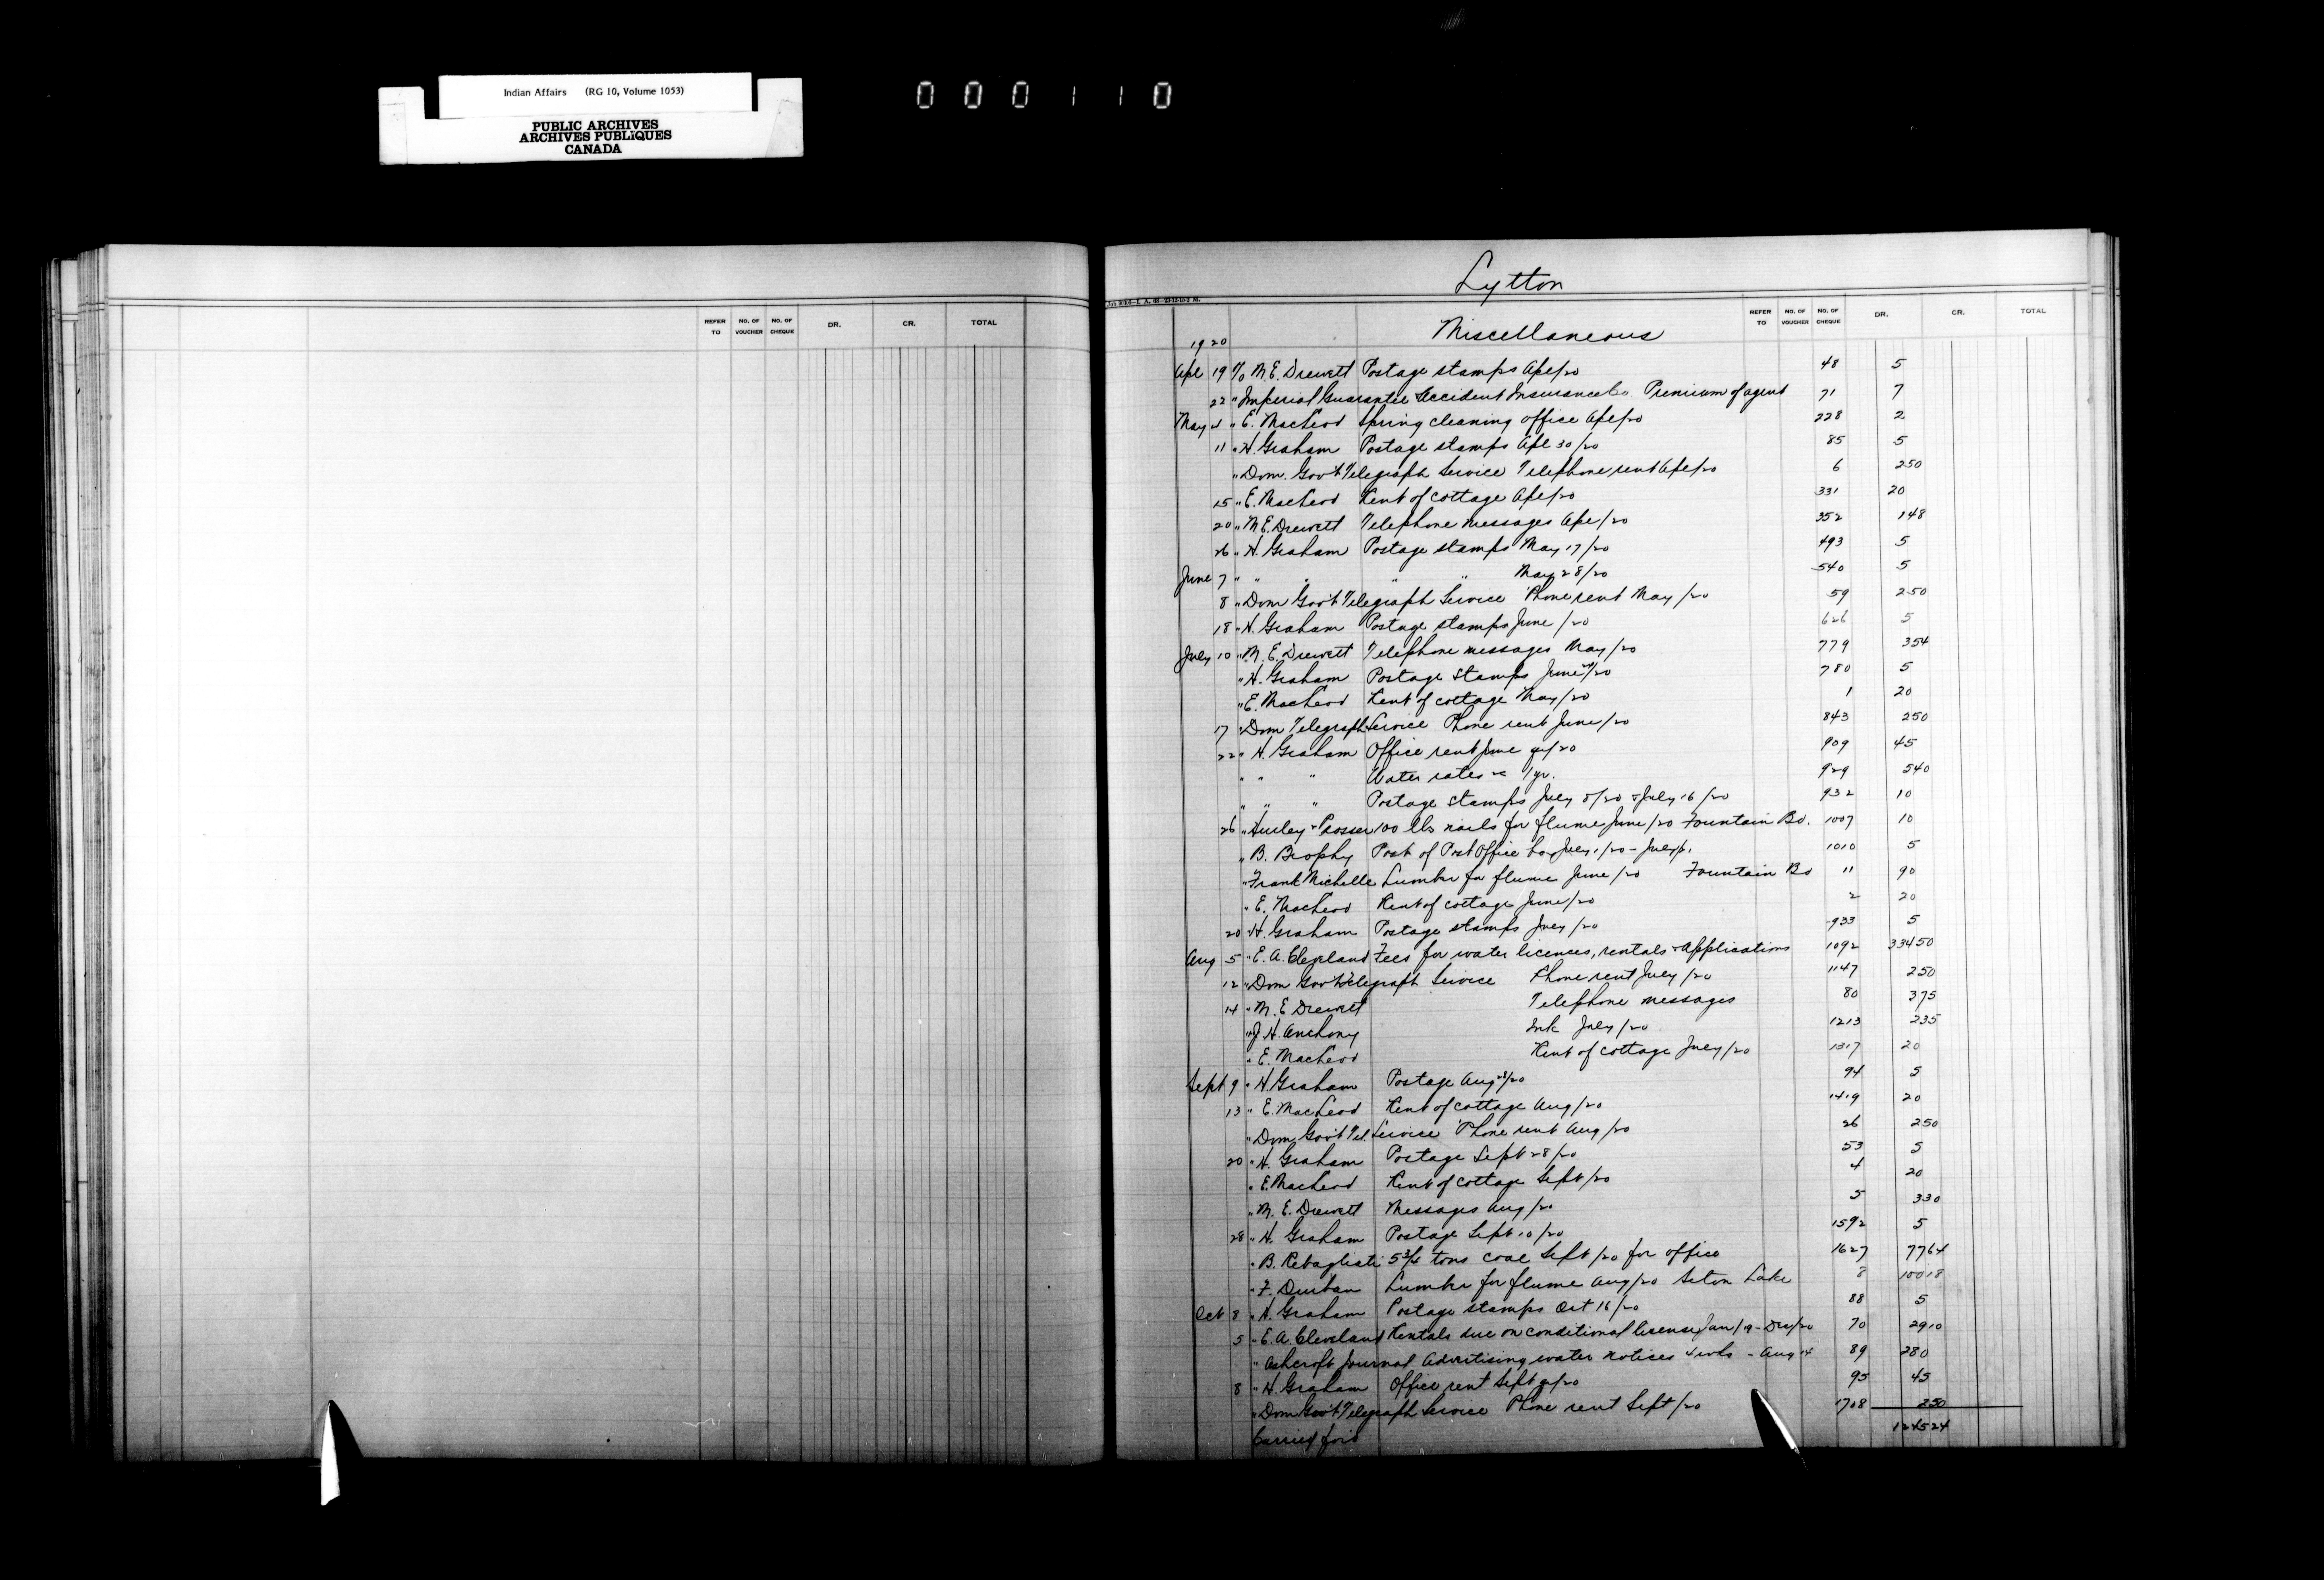 Indian Affairs (RG 10, Volume 1053)
PUBLIC ARCHIVES
ARCHIVES PUBLIQUES
CANADA
000110
REFER TO NO. OF VOUCHER NO. OF CHEQUE DR. CR. TOTAL
Lytton
REFER TO NO. OF VOUCHER NO. OF CHEQUE DR. CR. TOTAL
Miscellaneous
1920
Apl 19 To M. E. Drewett Postage stamps Apl/20 48 5
22 " Imperial Guarantee Accident Insurance Co Premium of agent 71 7
May 4 " E. MacLeod Spring cleaning office Apl/20 228 2
11 " H. Graham Postage stamps Apl 30/20 85 5
" Dom. Gov't Telegraph Service Telephone rent Apl/20 6 2 50
15 " E. MacLeod Rent of cottage Apl/20 331 20
20 " M. E. Drewett Telephone messages Apl/20 352 1 48
26 " H. Graham Postage stamps May 17/20 493 5
June 7 " " " " " May 28/20 540 5
8 " Dom Gov't Telegraph Service 'Phone rent May/20 59 2 50
18 " H. Graham Postage stamps June/20 626 5
July 10 " M. E. Drewett Telephone messages May/20 779 3 54
" H. Graham Postage stamps June /20 780 5
" E. MacLeod Rent of cottage May/20 1 20
17 " Dom Telegraph Service Phone rent June/20 843 2 50
22 " H. Graham Office rent June qr/20 909 45
" " " Water rates 1 yr. 929 5 40
" " " Postage stamps July 8/20 & July 16/20 932 10
26 " Hurley & Prosser 100 lbs nails for flume June/20 Fountain Bd. 1007 10
" B. Brophy Post Office box July 1/20 - July 1010 5
" Frank Michelle Lumber for flume June/20 Fountain Bd 11 90
" E. MacLeod Rent of cottage June/20 2 20
20 " H. Graham Postage stamps July/20 933 5
Aug 5 " E. A. Cleveland Fees for water licences, rentals & Applications 1092 334 50
12 " Dom Gov't Telegraph Service Phone rent July/20 1147 2 50
14 " M. E. Drewett Telephone messages 80 3 75
" J. H. Anthony Ink July/20 1213 2 35
" E. MacLeod Rent of cottage July/20 1317 20
Sept 9 " H. Graham Postage Aug /20 94 5
13 " E. MacLeod Rent of cottage Aug/20 1419 20
" Dom Gov't Tel. Service 'Phone rent Aug/20 26 2 50
20 " H. Graham Postage Sept 28/20 53 5
" E. MacLeod Rent of cottage Sept/20 4 20
" M. E. Drewett Messages Aug/20 5 3 30
28 " H. Graham Postage Sept 10/20 1592 5
" B. Rebagliati 5 3/4 tons coal Sept/20 for office 1627 77 64
" F. Durban Lumber for flume Aug/20 Seton Lake 8 100 18
Oct 8 " H. Graham Postage stamps Oct 16/20 88 5
5 " E. A. Cleveland Rentals due on conditional license Jan/19 - Dec/20 70 29 10
" Ashcroft Journal Advertising water notices 4 wks - Aug 14 89 2 80
8 " H. Graham Office rent Sept qr/20 95 45
" Dom Gov't Telegraph Service Phone rent Sept/20 1708 2 50
Carried for'd 1245 24